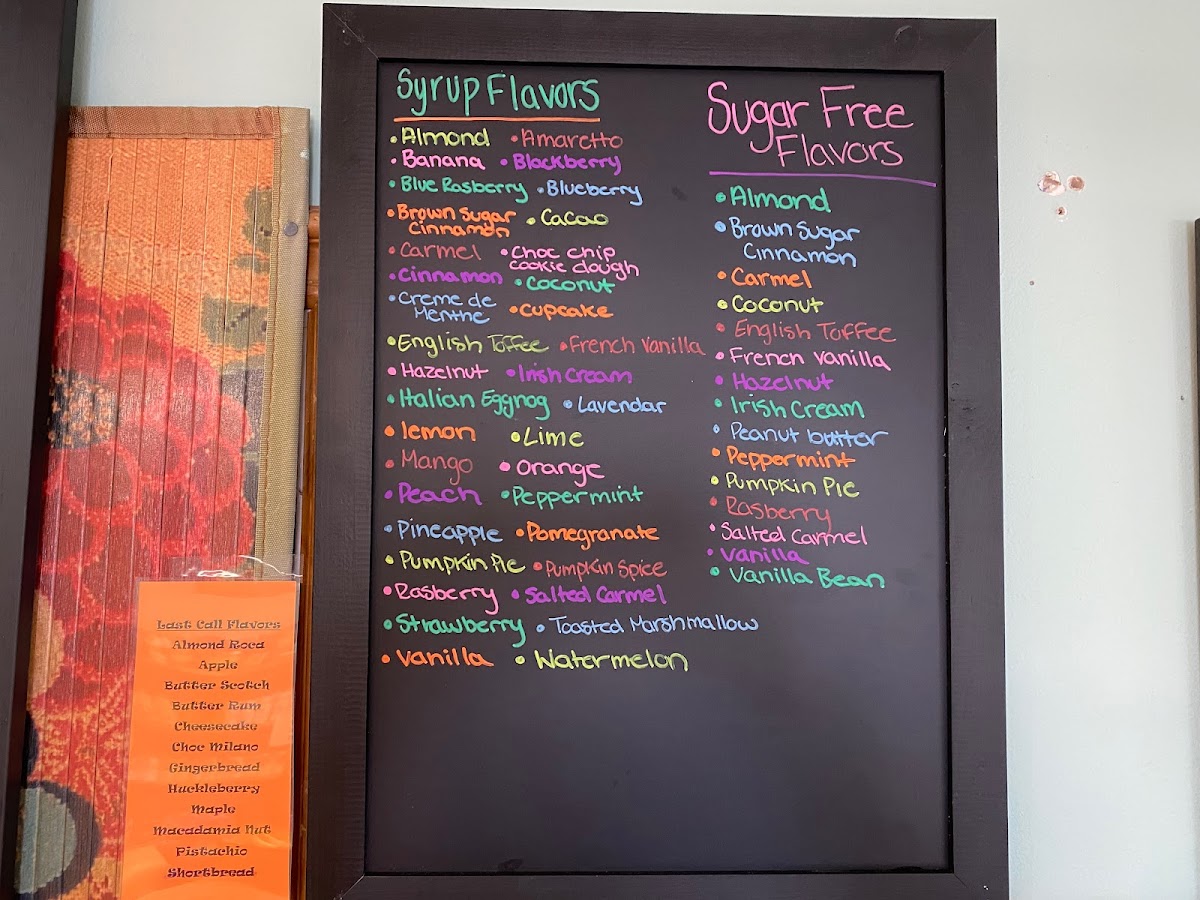 Syrup Flavors
• Almond • Amaretto
• Banana • Blackberry
• Blue Rasberry • Blueberry
• Brown Sugar Cinnamon • Cacao
• Carmel • Choc chip cookie dough
• Cinnamon • Coconut
• Creme de Menthe • Cupcake
• English Toffee • French Vanilla
• Hazelnut • Irish Cream
• Italian Eggnog • Lavendar
• lemon • Lime
• Mango • Orange
• Peach • Peppermint
• Pineapple • Pomegranate
• Pumpkin Pie • Pumpkin Spice
• Rasberry • Salted Carmel
• Strawberry • Toasted Marshmallow
• Vanilla • Watermelon
Sugar Free
Flavors
• Almond
• Brown Sugar
Cinnamon
• Carmel
• Coconut
• English Toffee
• French Vanilla
• Hazelnut
• Irish Cream
• Peanut butter
• Peppermint
• Pumpkin Pie
• Rasberry
• Salted Carmel
• Vanilla
• Vanilla Bean
Last Call Flavors
Almond Roca
Apple
Butter Scotch
Butter Rum
Cheesecake
Choc Milano
Gingerbread
Huckleberry
Maple
Macadamia Nut
Pistachio
Shortbread